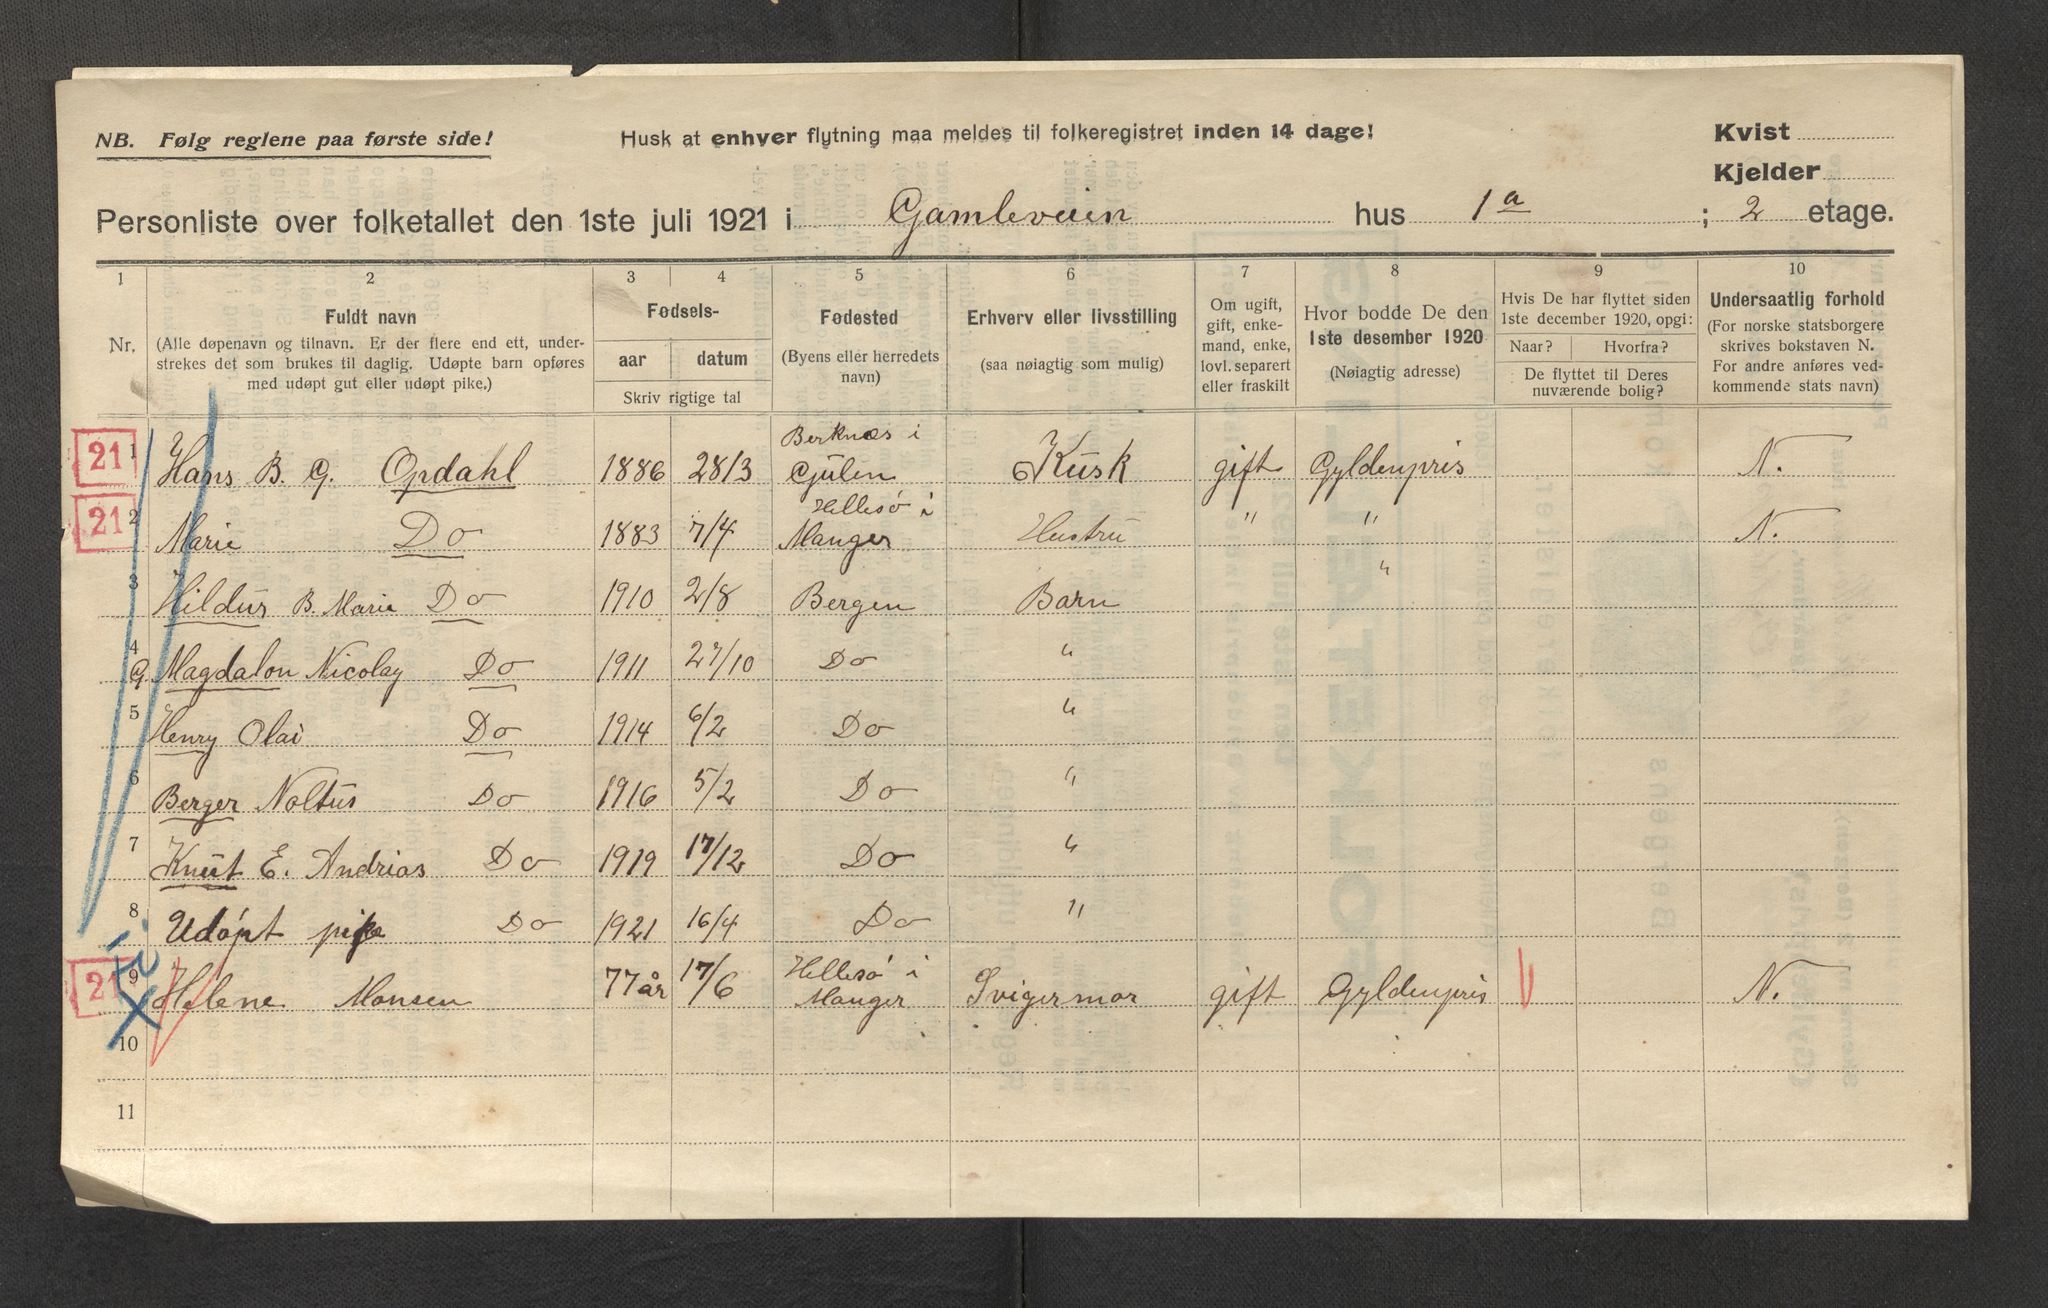 NB. Følg reglene paa første side!
Husk at enhver flytning maa meldes til folkeregistret inden 14 dage!
Kvist
Kjelder
Personliste over folketallet den 1ste juli 1921 i Gamleveien hus 1a ; 2 etage.
1 2 3 4 5 6 7 8 9 10
Nr.
Fuldt navn
(Alle døpenavn og tilnavn. Er der flere end ett, under-
strekes det som brukes til daglig. Udøpte barn opføres
med udøpt gut eller udøpt pike.)
Fødsels-
aar datum
Skriv rigtige tal
Fødested
(Byens eller herredets
navn)
Erhverv eller livsstilling
(saa nøiagtig som mulig)
Om ugift,
gift, enke-
mand, enke,
lovl. separert
eller fraskilt
Hvor bodde De den
1ste desember 1920
(Nøiagtig adresse)
Hvis De har flyttet siden
1ste december 1920, opgi:
Naar? Hvorfra?
De flyttet til Deres
nuværende bolig?
Undersaatlig forhold
(For norske statsborgere
skrives bokstaven N.
For andre anføres ved-
kommende stats navn)
21 1 Hans B. G. Opdahl 1886 28/3 Berknes i Gulen Kusk gift Gyldenpris N.
21 2 Marie Do 1883 7/4 Hellesø i Manger Hustru " " N.
3 Hildur B. Marie Do 1910 2/8 Bergen Barn "
4 G. Magdalon Nicolay Do 1911 27/10 Do "
5 Henry Olai Do 1914 6/2 Do "
6 Berger Noltus Do 1916 5/2 Do "
7 Knut E. Andrias Do 1919 17/12 Do "
8 Udøpt pike Do 1921 16/4 Do "
21 9 Helene Monsen 77 år 17/6 Hellesø i Manger Svigermor gift Gyldenpris N.
10
11